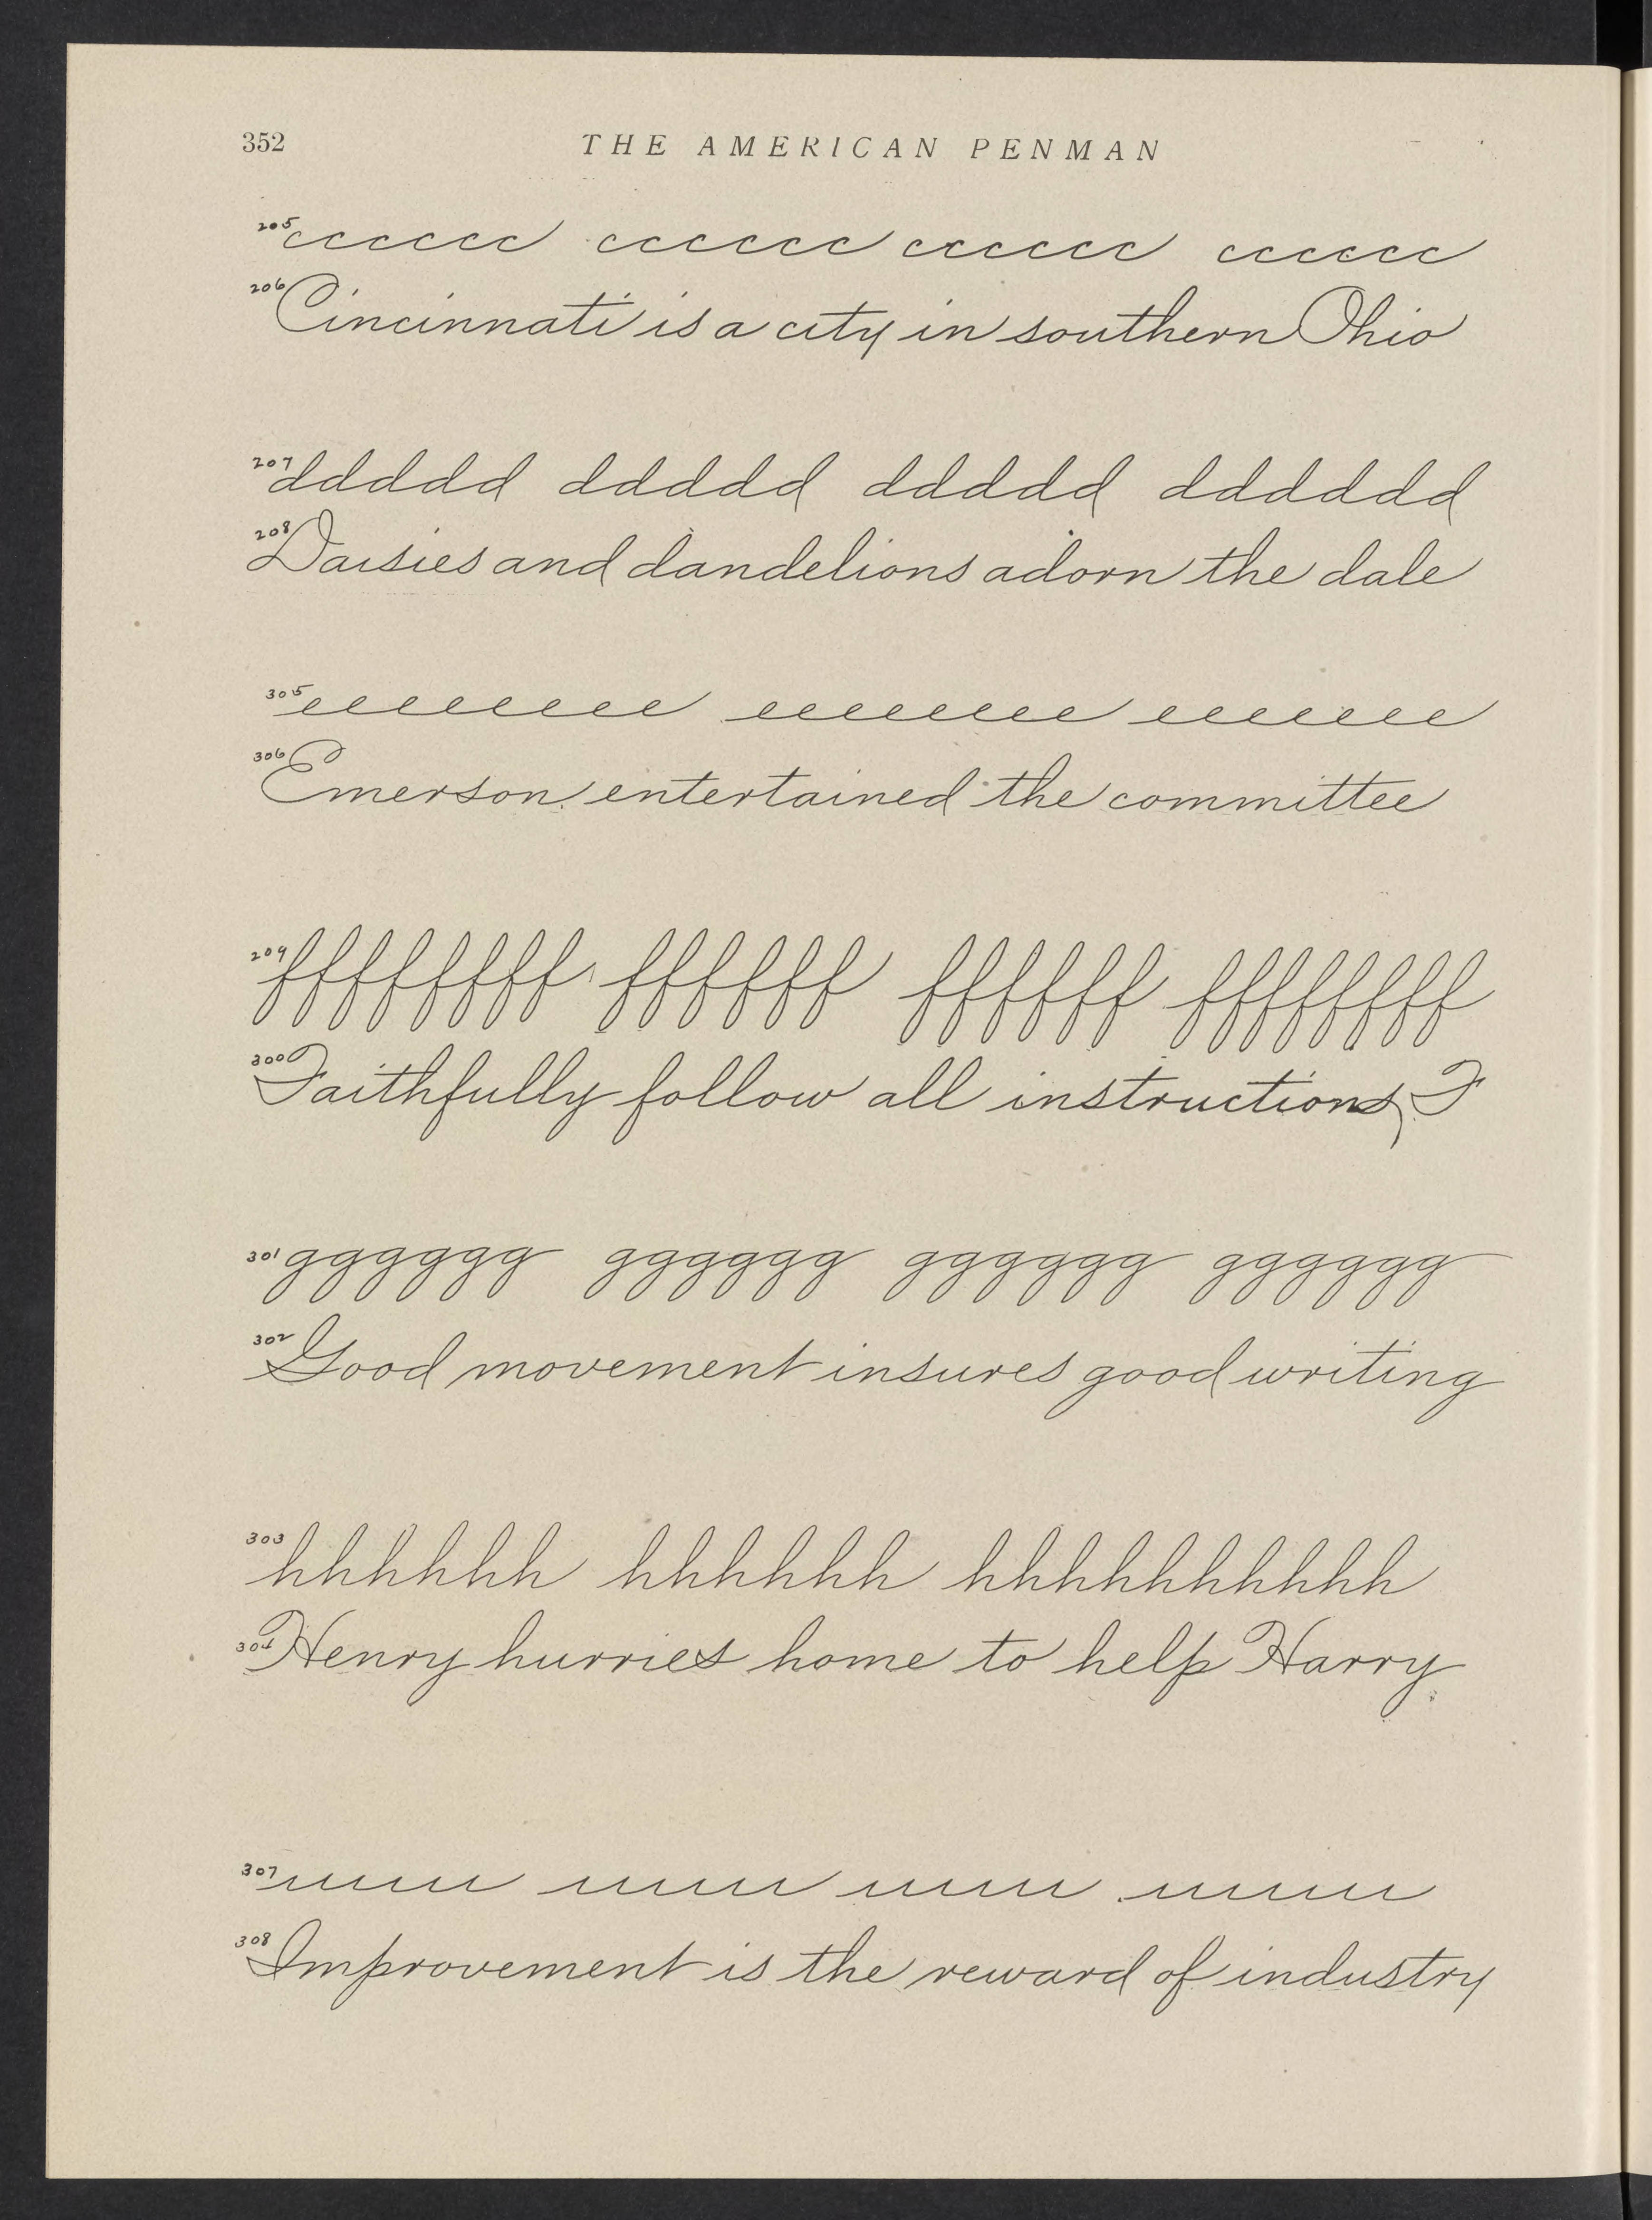 352 THE AMERICAN PENMAN
205 cccccc cccccc cccccc cccccc
206 Cincinnati is a city in southern Ohio
207 dddddd ddddd ddddd ddddddd
208 Daisies and dandelions adorn the dale
305 eeeeeeeee eeeeeeee eeeeeee
306 Emerson entertained the committee
209 ffffffff ffffff ffffff ffffffff
300 Faithfully follow all instructions, F
301 gggggg gggggg gggggg gggggg
302 Good movement insures good writing
303 hhhhhh hhhhhh hhhhhhhhhh
304 Henry hurries home to help Harry
307 ııııııı ııııııı ııııııı ııııııı
308 Improvement is the reward of industry